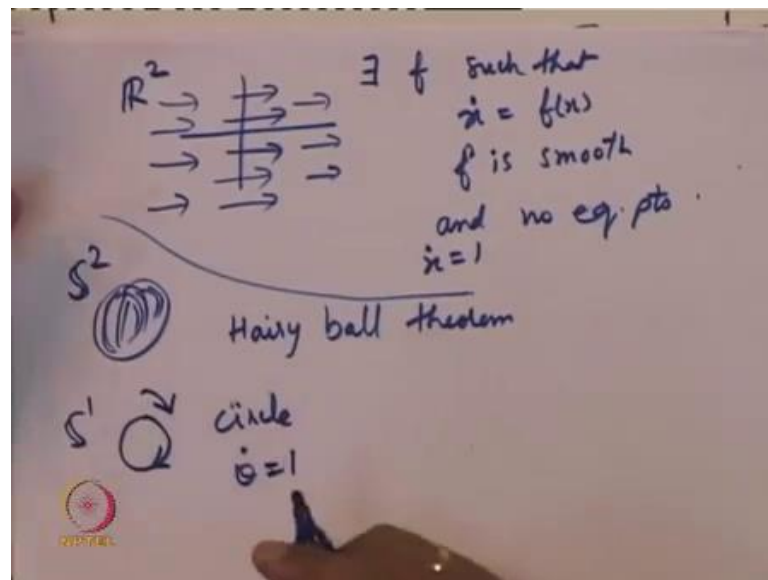 ℝ² ∃ f such that
ẋ = f(x)
f is smooth
and no eq. pts.
ẋ = 1
S² Hairy ball theorem
S¹ circle
θ̇ = 1
NPTEL